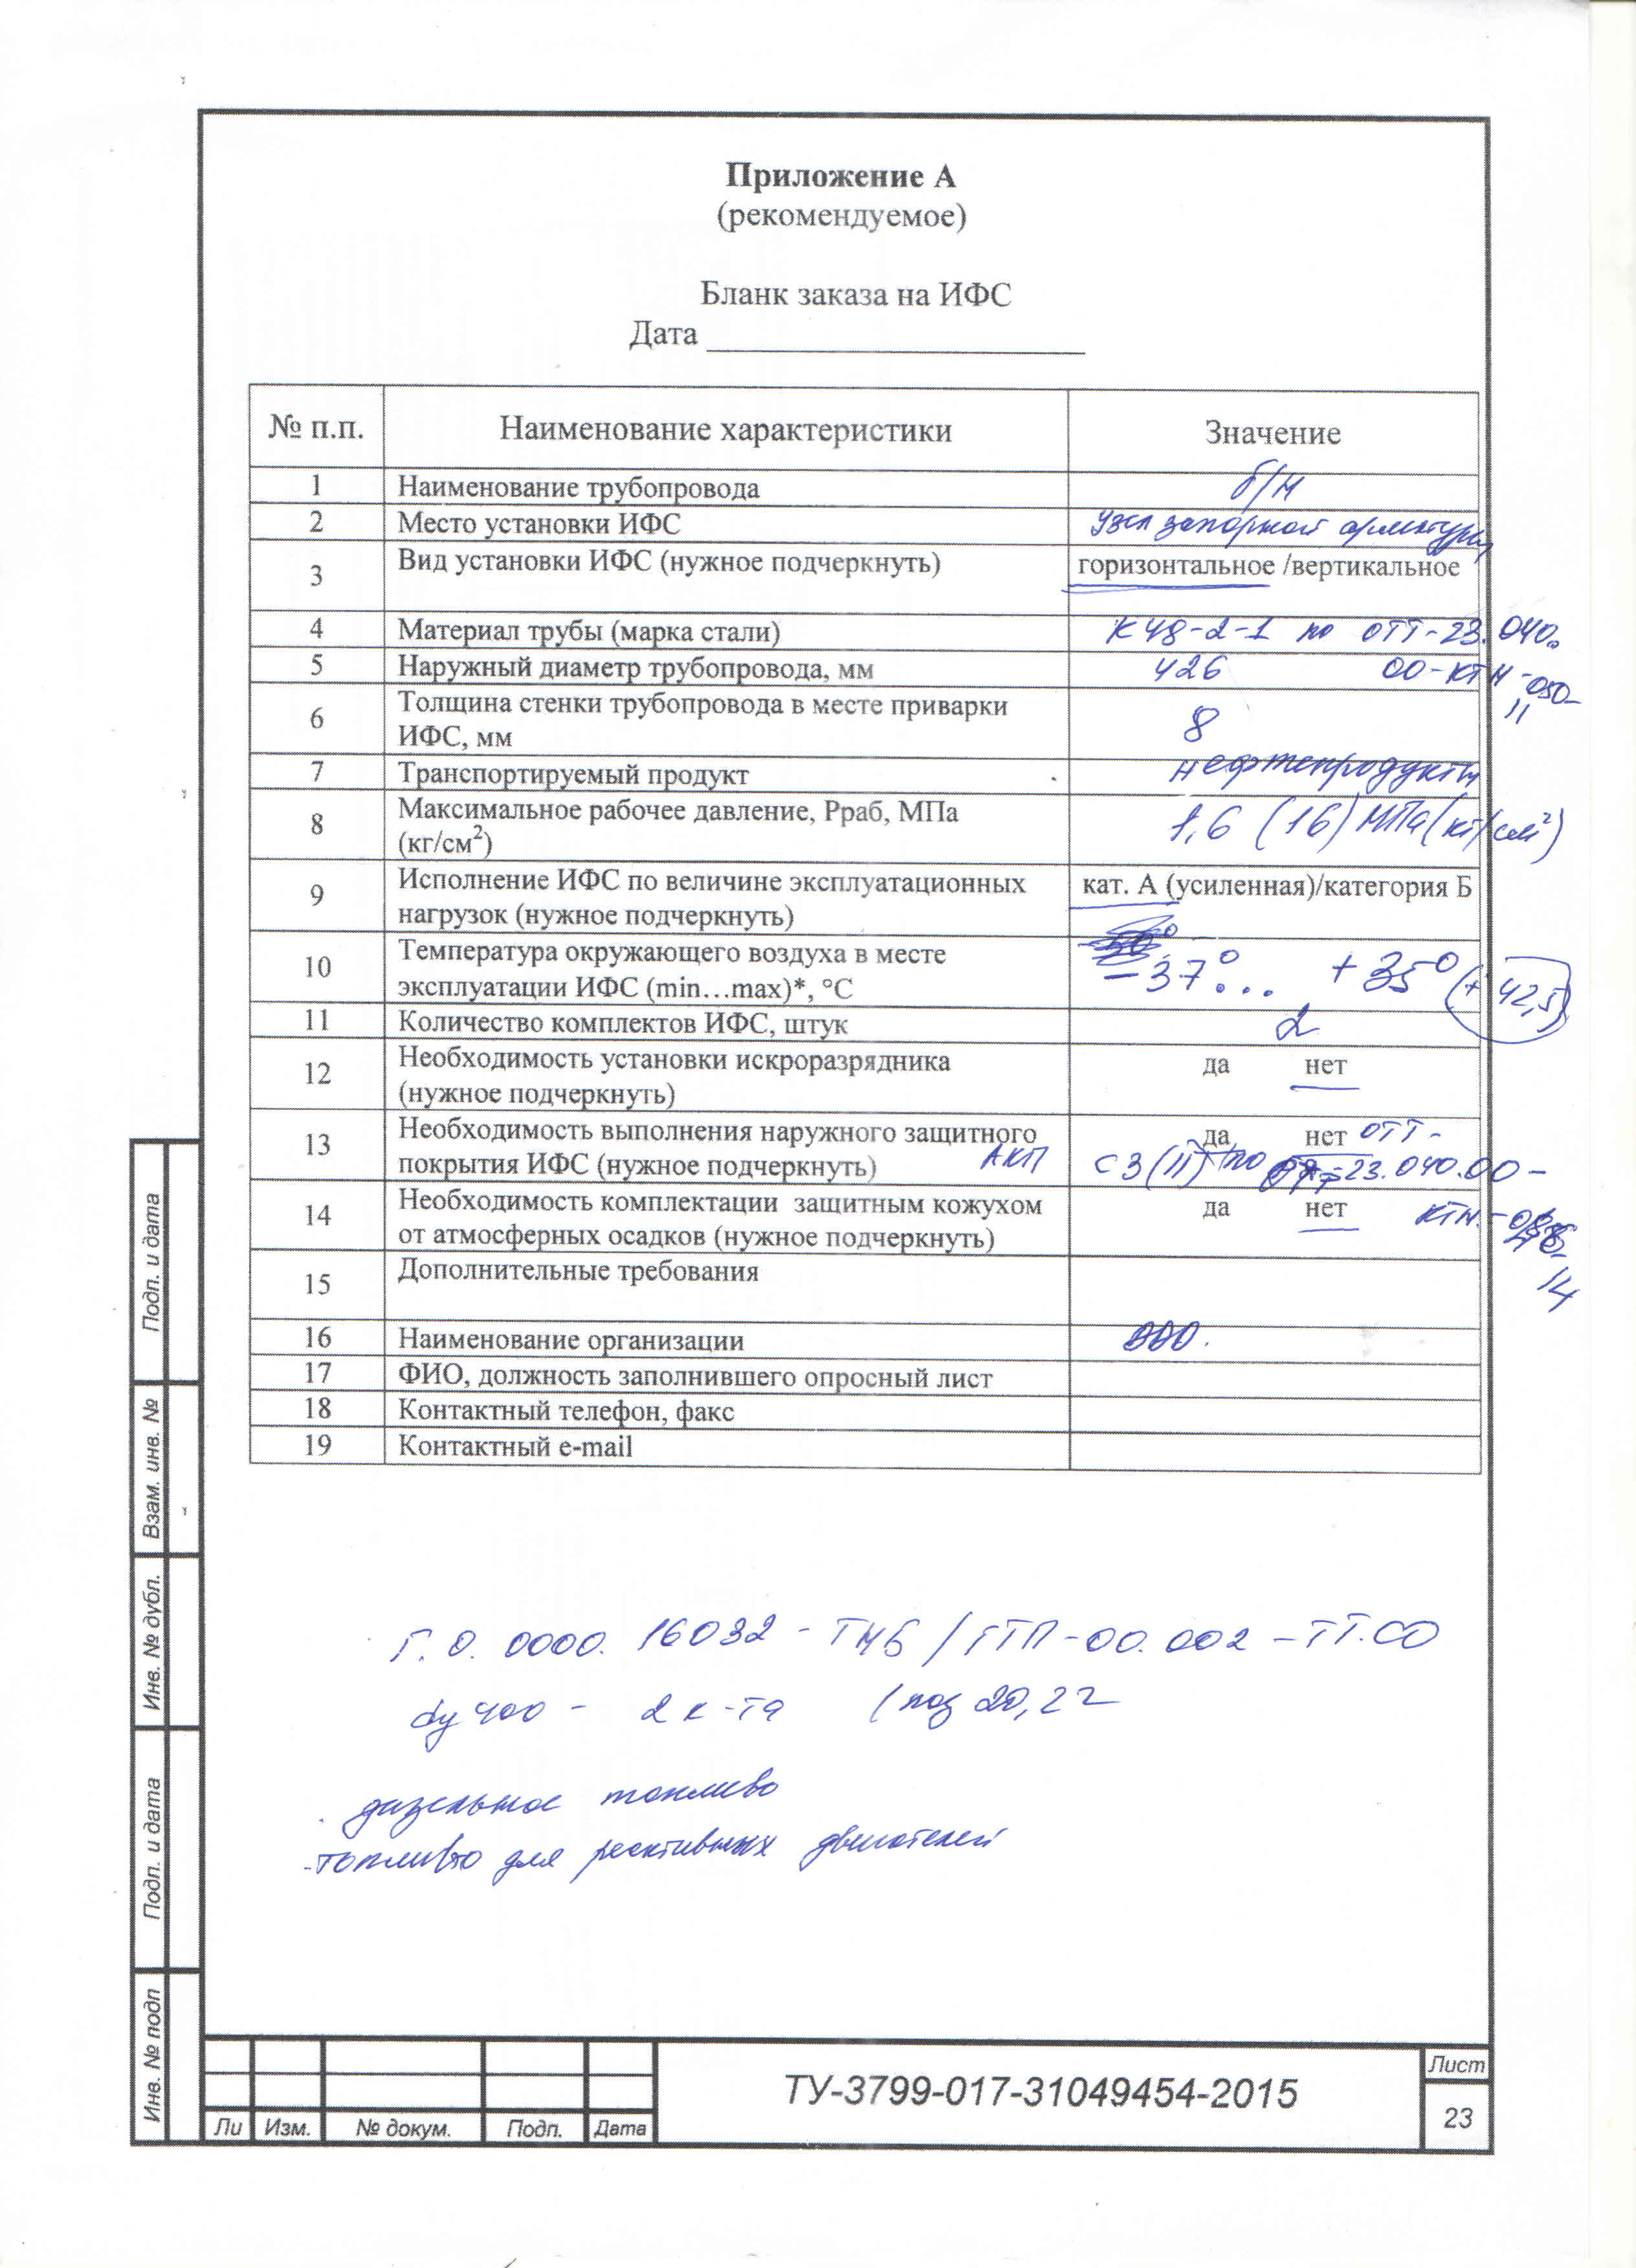 Приложение А
(рекомендуемое)
Бланк заказа на ИФС
Дата
№ п.п. Наименование характеристики Значение
1 Наименование трубопровода б/н
2 Место установки ИФС Узел запорной арматуры
3 Вид установки ИФС (нужное подчеркнуть) горизонтальное /вертикальное
4 Материал трубы (марка стали) К48-2-1 по ОТТ-23.040.
5 Наружный диаметр трубопровода, мм 426 00-КТН-050-
11
6 Толщина стенки трубопровода в месте приварки
ИФС, мм 8
7 Транспортируемый продукт нефтепродукты
8 Максимальное рабочее давление, Рраб, МПа
(кг/см²) 1,6 (16) МПа (кг/см²)
9 Исполнение ИФС по величине эксплуатационных
нагрузок (нужное подчеркнуть) кат. А (усиленная)/категория Б
10 Температура окружающего воздуха в месте
эксплуатации ИФС (min…max)*, °С -37°... +35° (+42,5)
11 Количество комплектов ИФС, штук 2
12 Необходимость установки искроразрядника
(нужное подчеркнуть) да нет
13 Необходимость выполнения наружного защитного да нет ОТТ-
покрытия ИФС (нужное подчеркнуть) АКП С3(II) по 23.040.00-
14 Необходимость комплектации защитным кожухом да нет КТН-
от атмосферных осадков (нужное подчеркнуть)
14
15 Дополнительные требования
16 Наименование организации ООО.
17 ФИО, должность заполнившего опросный лист
18 Контактный телефон, факс
19 Контактный e-mail
Г.О. 0000. 16032 - ТНБ/ГТП-00.002 - ТТ.СО
ду 400 - 2 к-та (поз 20,
дизельное топливо
-топливо для реактивных двигателей
Подп. и дата
Взам. инв. №
Инв. № дубл.
Подп. и дата
Инв. № подп
Ли Изм. № докум. Подп. Дата
ТУ-3799-017-31049454-2015
Лист
23